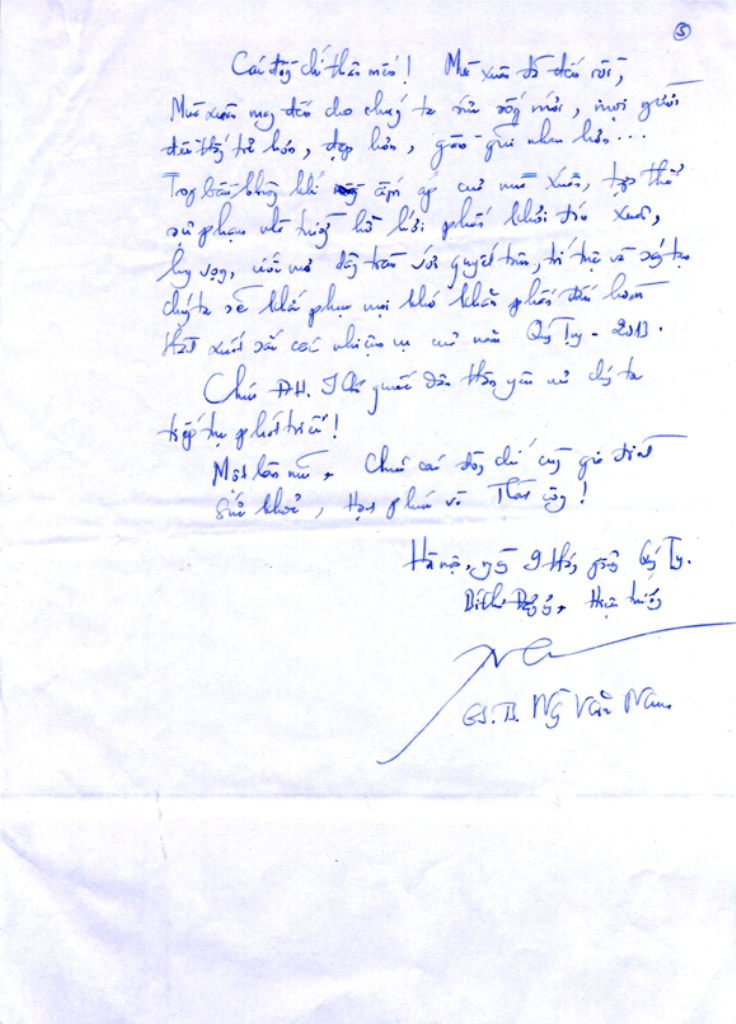 5
Các đồng chí thân mến! Mùa xuân đã đến rồi,
Mùa xuân mang đến cho chúng ta sức sống mới, mọi người
đều thấy trẻ hơn, đẹp hơn, gần gũi nhau hơn...
Trong bầu không khí ấm áp của mùa xuân, tập thể
sư phạm nhà trường hồ hởi phấn khởi đón xuân,
hy vọng, ước mơ với quyết tâm, trí tuệ và sáng tạo
chúng ta sẽ khắc phục mọi khó khăn phấn đấu hoàn
thành xuất sắc các nhiệm vụ của năm Quý Tỵ - 2013.
Chúc ĐH. KTế quốc dân thân yêu của chúng ta
tiếp tục phát triển!
Một lần nữa, Chúc các đồng chí cùng gia đình
Sức khoẻ, Hạnh phúc và Thành công!
Hà nội, ngày 9 tháng giêng Quý Tỵ.
Bí thư Đảng ủy, Hiệu trưởng
GS.TS. Ng Văn Nam